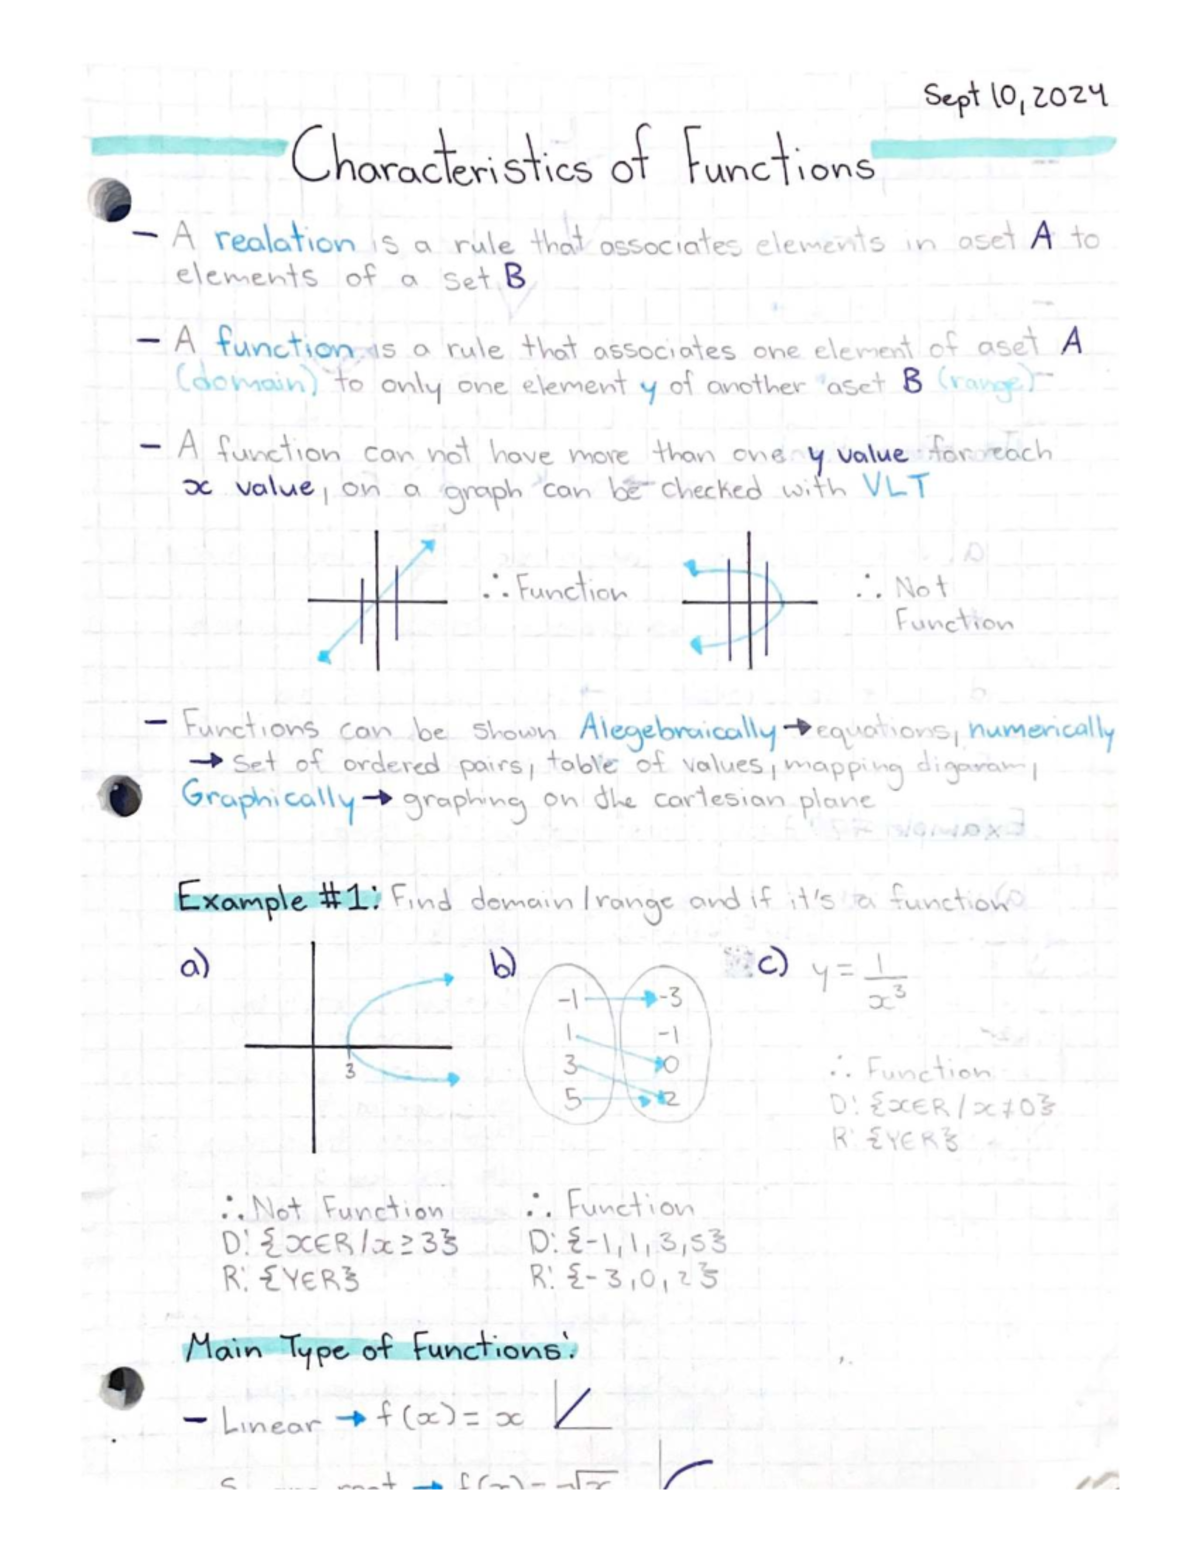 Sept 10, 2024
Characteristics of Functions
- A realation is a rule that associates elements in aset A to
elements of a set B
- A function is a rule that associates one element of aset A
(domain) to only one element y of another aset B (range)
- A function can not have more than one y value for each
x value, on a graph can be checked with VLT
∴ Function
∴ Not
Function
- Functions can be shown Alegebraically → equations, numerically
→ set of ordered pairs, table of values, mapping digaram,
Graphically → graphing on the cartesian plane
Example #1: Find domain/range and if it's a function
a)
3
b)
-1 -3
1 -1
3 0
5 2
c) y = 1/x³
∴ Function
D: {x∈R / x≠0}
R: {Y∈R}
∴ Not Function
D: {x∈R / x ≥ 3}
R: {Y∈R}
∴ Function
D: {-1, 1, 3, 5}
R: {-3, 0, 2}
Main Type of Functions:
- Linear → f(x) = x